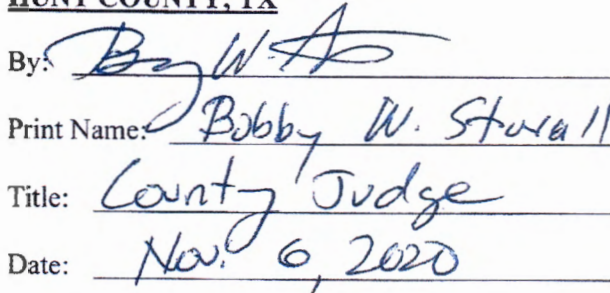 HUNT COUNTY, TX
By:
Print Name: Bobby W. Stovall
Title: County Judge
Date: Nov. 6, 2020